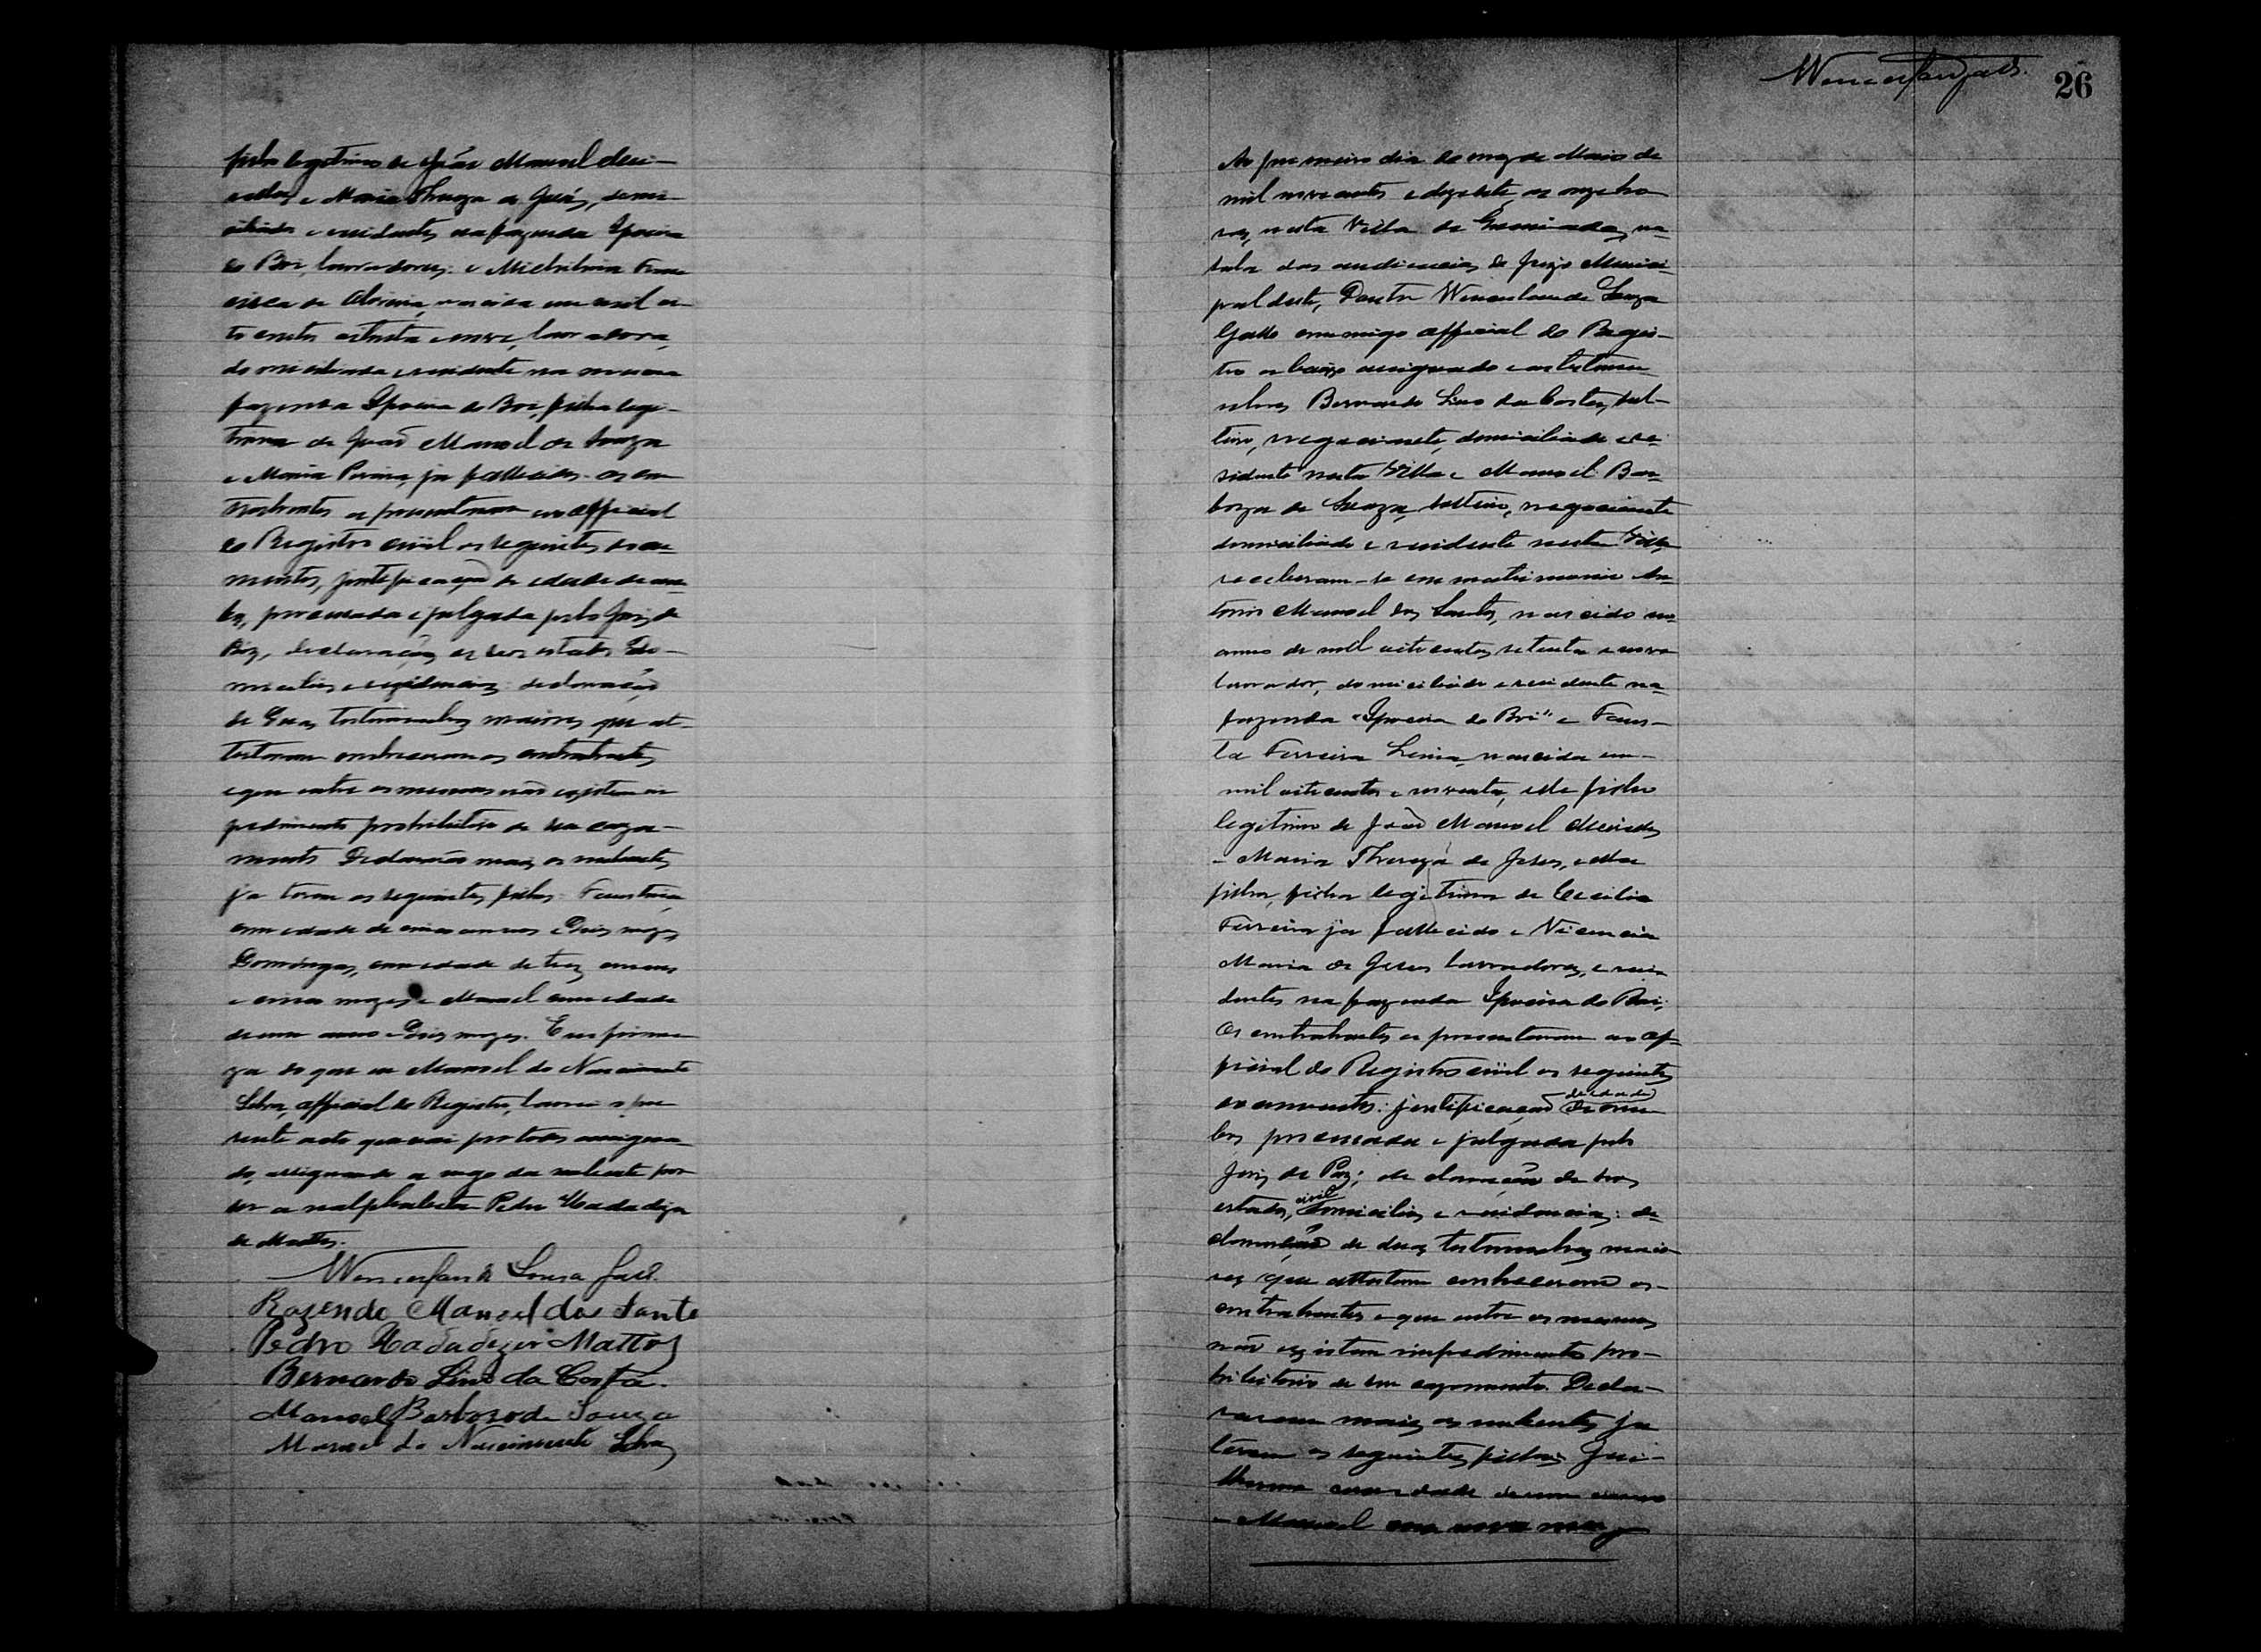 filho legitimo de João Manoel
e Maria Thereza de Jesus, domi-
ciliados e residentes na fazenda Ipoeira
do Boi, lavradores; e Fran-
cisca de nascida em mil oi-
to centos oitenta e nove, lavradora,
domiciliada e residente na mesma
fazenda Ipoeira do Boi, filha legi-
tima de João Manoel de Souza
e Maria Pereira, já fallecidos. Os con-
trahentes apresentaram ao official
do Registro civil os seguintes docu-
mentos, justificação de edade de am-
bos, processada e julgada pelo Juiz de
Paz, declaração de seus estados do-
micilios e residencias; declaração
de duas testemunhas maiores, que at-
testaram conhecerem os contrahentes
e que entre os mesmos não existem im-
pedimento prohibitivo de seu caza-
mento. Declararão mais os nubentes
já terem os seguintes filhos: Faustina
com edade de cinco annos e dois mezes,
Domingas, com edade de trez annos
e cinco mezes e Manoel com edade
de um anno e dois mezes. E em firme-
za do que eu Manoel do Nascimento
Silva, official do Registro, lavrei o pre-
sente acto que vai por todos assigna-
do, assignando a rogo da nubente por
ser analphabeta Pedro
de Mattos.
Rozendo Manoel dos Santo
Pedro Mattos
Bernardo Lino da Costa.
Manoel Barbozo de Souza
Manoel do Nascimento Silva
26
Ao primeiro dia do mez de Maio de
mil novecentos e dezesete, as onze ho-
ras, nesta Villa de na
sala das audiencias do Juizo Munici-
pal deste, Doutor Wenceslau de Souza
commigo official do Regis-
tro abaixo assignado e as testemu-
nhas Bernardo Lino da Costa, sol-
teiro, negociante, domiciliado e re-
sidente nesta Villa e Manoel Bar-
boza de Souza, solteiro, negociante
domiciliado e residente nesta Villa
receberam-se em matrimonio An-
tonio Manoel dos Santos, nascido no
anno de mil oitocentos setenta e nove
lavrador, domiciliado e residente na
fazenda "Ipoeira do Boi" e Faus-
ta Ferreira Lima, nascida em
mil oitocentos e noventa, elle filho
legitimo de João Manoel
e Maria Thereza de Jesus, e ella
filha, filha legitima de Cecilio
Ferreira já fallecido e Vicencia
Maria de Jesus lavradores, e resi-
dentes na fazenda Ipoeira do Boi.
Os contrahentes apresentaram ao of-
ficial do Registro civil os seguintes
documentos: justificação de edade de am-
bos processada e julgada pelo
Juiz de Paz; declaração de seus
estados, civil domicilios e residencias; de-
claração de duas testemunhas maio-
res que attestam conhecerem os
contrahentes e que entre os mesmos
não existem impedimento pro-
hibitorio de seu cazamento. Decla-
raram mais os nubentes já
terem os seguintes filhos: Gui-
lherme com edade de um anno
e Manoel com nove mezes